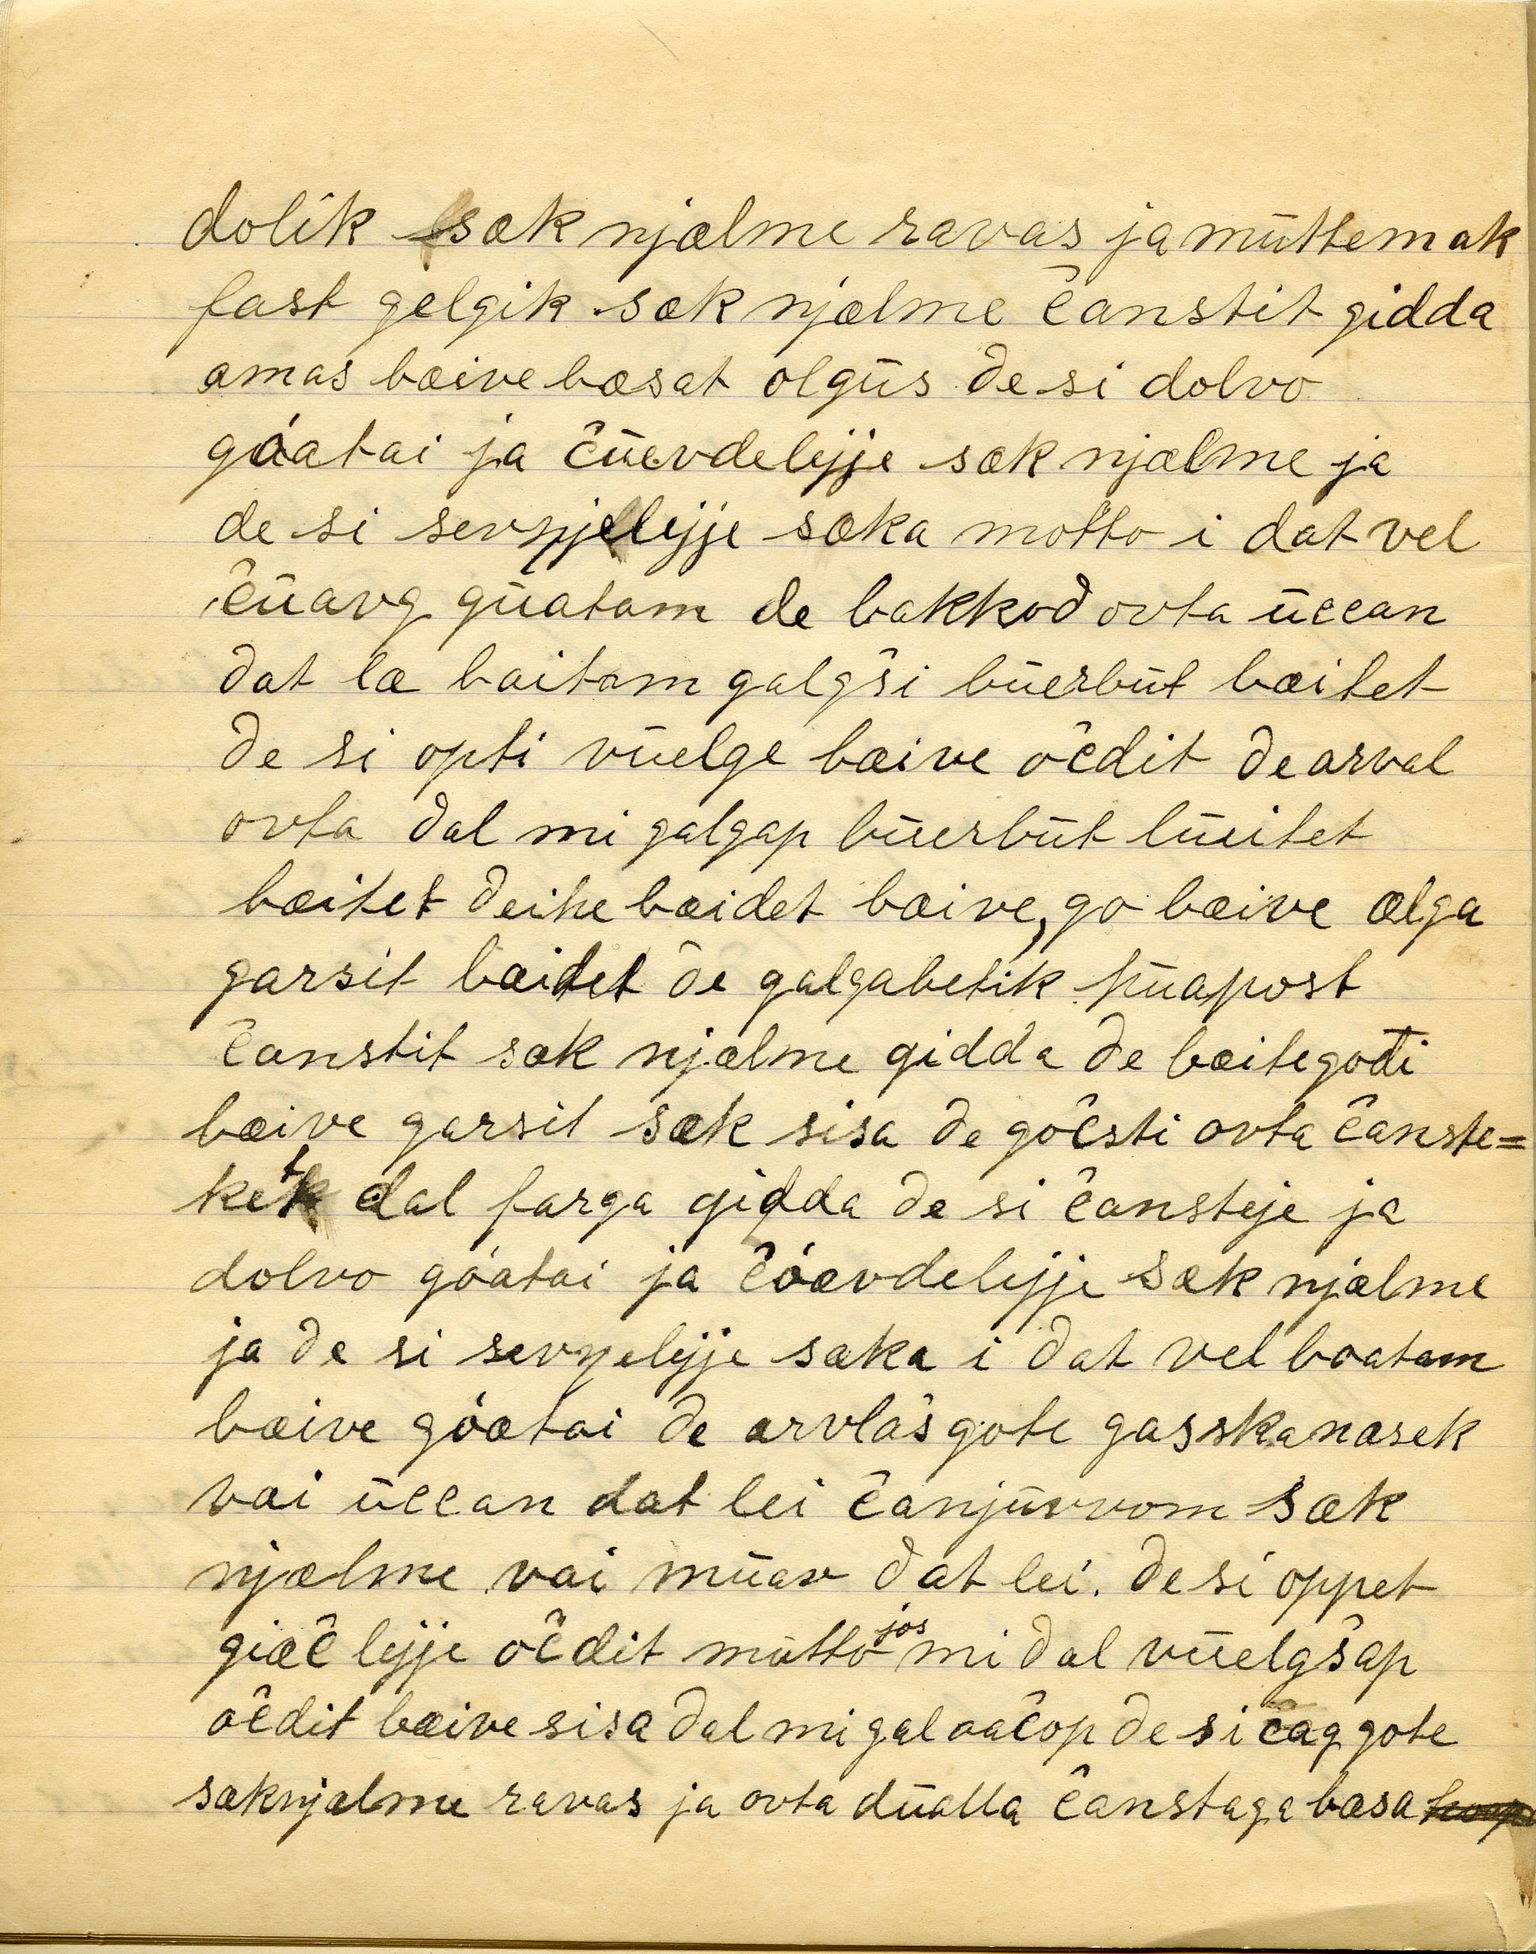 dolik sæk njælme ravas ja müttemak
fast gelgik sæk njælme čanstit gidda
amas bæive bæsat olgüs de si dolvo
góatai ja čüevdelijje sæk njælme ja
de si sevnjelijje sæka motto i dat vel
čüavg güatam de bakkod ovta üccan
dat læ baitam galgši büerbüt bæitet
de si opti vüelge bæive očdit de arval
ovta dal mi galgap büerbüt lüitet
bæitet deihe bæidet bæive, go bæive ælga
garsit bæidet de galgabetik hüapost
čanstit sæk njælme gidda de bæitegođi
bæive garsit sæk sisa de gočsti ovta čanste=
ket dal farga gidda de si čansteje ja
dolvo góatai ja čóævdelijje sæk njælme
ja de si sevnelijje sæka i dat vel boatam
bæive góætai de arvlašgote gasskanasek
vai üccan dat lei čanjüvvom sæk
njælme vai müav dat lei. de si oppet
giæčlijje očdit mütto jos mi dal vüelgšap
očdit bæive sisa dal mi gal oačop de si čaggote
sæknjælme ravas ja ovta düalla čanstaga bæsa